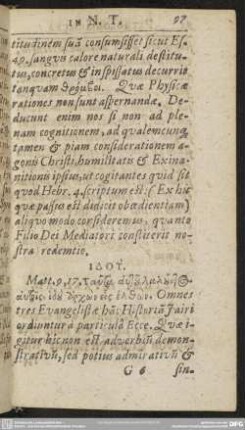 IN N. T. 97
titudinem suã consumsisset sicut Es.
49. sanguis calore naturali destitu-
tus, concretus & inspissatus decurrit
tanquam θρόμβοι. Quæ Physicæ
rationes non sunt aspernandæ. De-
ducunt enim nos si non ad ple-
nam cognitionem, ad qualemcunq;
tamen & piam considerationem a-
goniæ Christi, humilitatis & Exina-
nitionis ipsius, ut cogitantes quid sit
quod Hebr. 4. scriptum est: (Ex his
quæ passus est didicit obedientiam)
aliquo modo consideremus, quanto
Filio Dei Mediatori constiterit no-
stra redemtio.
ΙΔΟΥ.
Matt. 9, 17. ταῦτα αὐτοῦ λαλοῦντος
αὐτοῖς ἰδοὺ ἄρχων εἷς ἐλθὼν. Omnes
tres Evangelistæ hãc Historiã Jairi
ordiuntur à particulâ Ecce. Quæ i-
gitur hic non est adverbiũ demon-
strativũ, sed potius admirativũ &
G 6 sin-